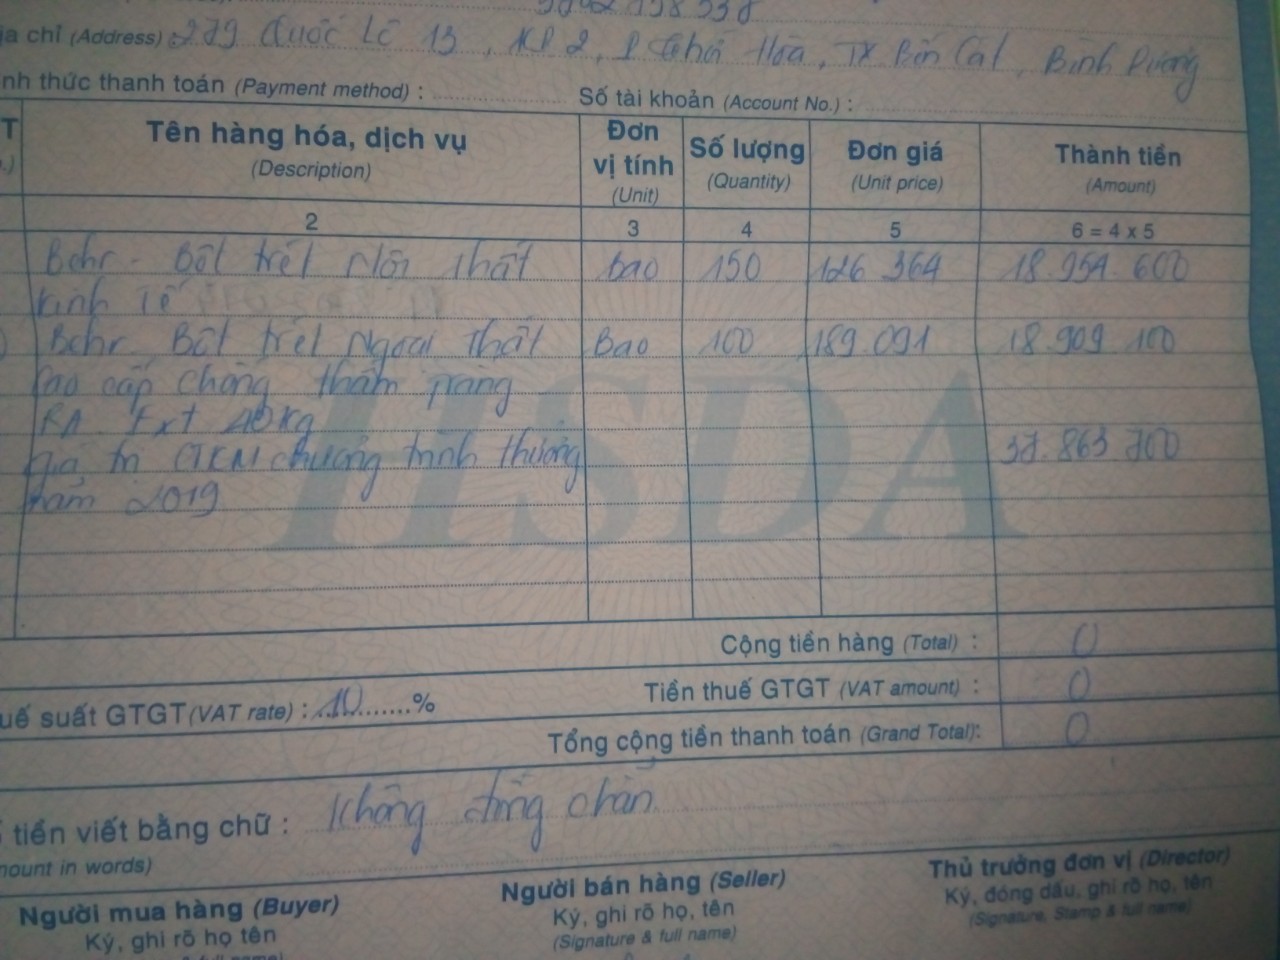 ịa chỉ (Address) 279 Quốc Lộ 13, KP 2, P Thới Hòa, TX Bến Cát, Bình Dương
nh thức thanh toán (Payment method) : Số tài khoản (Account No.) :
T Tên hàng hóa, dịch vụ Đơn vị tính Số lượng Đơn giá Thành tiền
.) (Description) (Unit) (Quantity) (Unit price) (Amount)
2 3 4 5 6 = 4 x 5
Behr - Bột trét Nội thất bao 150 126 364 18.954.600
kinh tế
Behr Bột trét Ngoại thất Bao 100 189.091 18.909 100
Cao cấp chống thấm
RA Ext 40kg
giá trị CTKM chương trình thưởng 37.863 700
năm 2019
HSDA
Cộng tiền hàng (Total) : 0
uế suất GTGT (VAT rate) : 10 % Tiền thuế GTGT (VAT amount) : 0
Tổng cộng tiền thanh toán (Grand Total): 0
ố tiền viết bằng chữ : Không đồng chẵn
mount in words)
Người mua hàng (Buyer) Người bán hàng (Seller) Thủ trưởng đơn vị (Director)
Ký, ghi rõ họ tên Ký, ghi rõ họ, tên Ký, đóng dấu, ghi rõ họ, tên
& full name) (Signature & full name) (Signature, Stamp & full name)